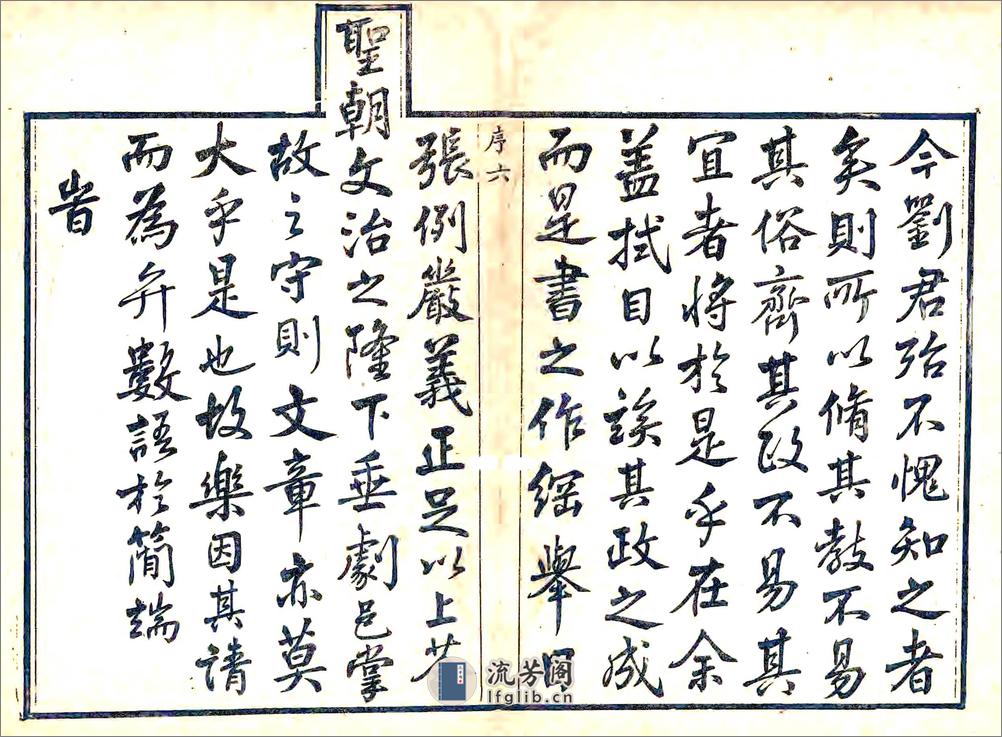 今劉君殆不愧知之者
矣則所以脩其教不易
其俗齊其政不易其
宜者將於是乎在余
盖拭目以竢其政之成
而是書之作綱舉目
序六
張例嚴義正足以上昔
聖朝文治之隆下垂劇邑掌
故之守則文章亦莫
大乎是也故樂因其請
而為弁數語於簡端
旹
流芳阁
lfglib.cn